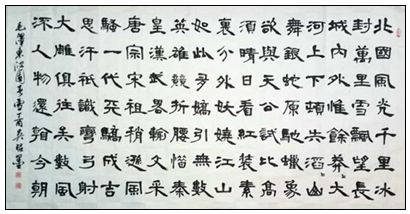 北國風光千里冰
封萬里雪飄望長
城内外惟餘莽〻大
河上下頓失滔〻山
舞銀蛇原馳蠟象
欲與天公試比高
須晴日看紅裝素
裹分外妖嬈江山
如此多嬌引無數
英雄競折腰惜秦
皇漢武略輸文采
唐宗宋祖稍遜風
騷一代天驕成吉
思汗祇識彎弓射
大雕俱往矣數風
流人物還看今朝
毛澤東沁園春雪